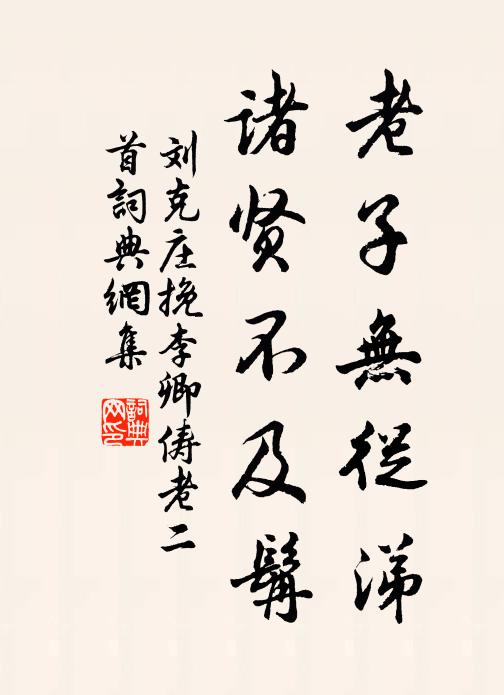 老子無從涕
诸贤不及髯
刘克庄挽李卿俦老二
首詞典網集
詞典網印